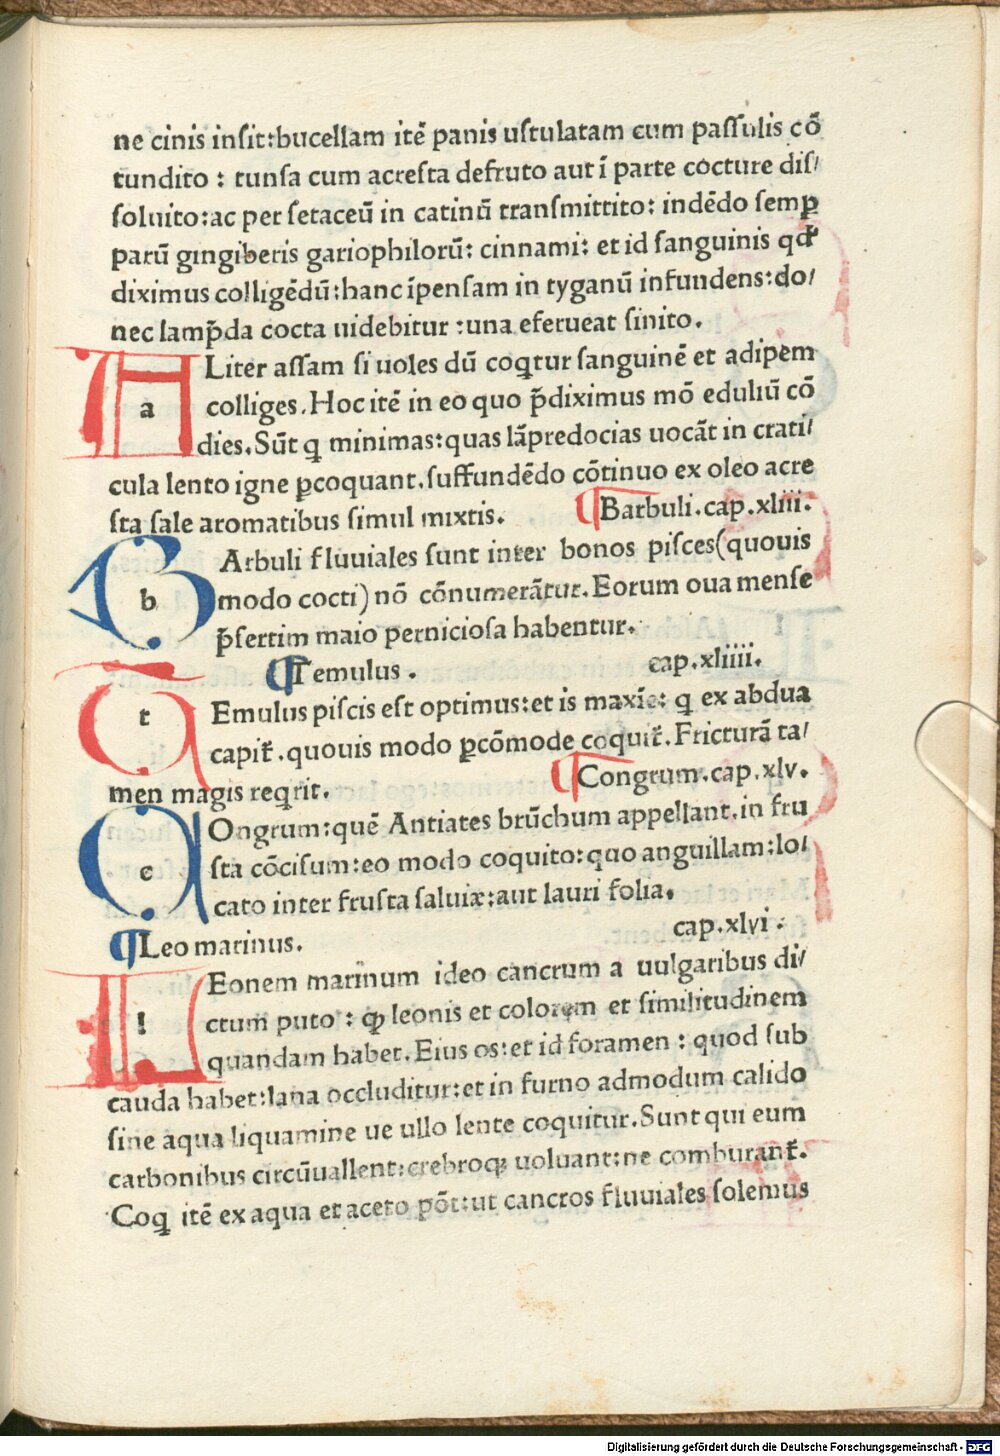 ne cinis inſit:bucellam itē panis uſtulatam cum paſſulis cō
tundito : tunſa cum acreſta defruto aut ī parte cocture diſ/
ſoluito:ac per ſetaceū in catinū tranſmittito: indēdo ſemꝑ
parū gingiberis gariophilorū: cinnami: et id ſanguinis qđ
diximus colligēdū:hanc īpenſam in tyganū infundens:do/
nec lamp̄da cocta uidebitur :una eferueat ſinito.
ALiter aſſam ſi uoles dū coqtur ſanguinē et adipem
a
colliges.Hoc itē in eo quo p̄diximus mō eduliū cō
dies.Sūt q minimas:quas lāpredocias uocāt in crati/
cula lento igne ꝑcoquant.ſuffundēdo cōtinuo ex oleo acre
ſta ſale aromatibus ſimul mixtis. ¶Barbuli.cap.xliii.
BArbuli fluuiales ſunt inter bonos piſces(quouis
b
modo cocti) nō cōnumerātur.Eorum oua menſe
p̄ſertim maio pernicioſa habentur.
¶Temulus . cap.xliiii.
TEmulus piſcis eſt optimus:et is maxīe: q ex abdua
t
capit̄.quouis modo ꝑcōmode coquit̄.Fricturā ta/
men magis reqrit. ¶Congrum.cap.xlv.
COngrum:quē Antiates brūchum appellant.in fru
c
ſta cōciſum:eo modo coquito:quo anguillam:lo/
cato inter fruſta ſaluiæ:aut lauri folia.
¶Leo marinus. cap.xlvi.
LEonem marinum ideo cancrum a uulgaribus di/
l
ctum puto : ꝙ leonis et colorem et ſimilitudinem
quandam habet.Eius os:et id foramen : quod ſub
cauda habet:lana occluditur:et in furno admodum calido
ſine aqua liquamine ue ullo lente coquitur.Sunt qui eum
carbonibus circūuallent:crebroqꝫ uoluant:ne comburant̄.
Coq itē ex aqua et aceto pōt:ut cancros fluuiales ſolemus
Digitalisierung gefördert durch die Deutsche Forschungsgemeinschaft - DFG